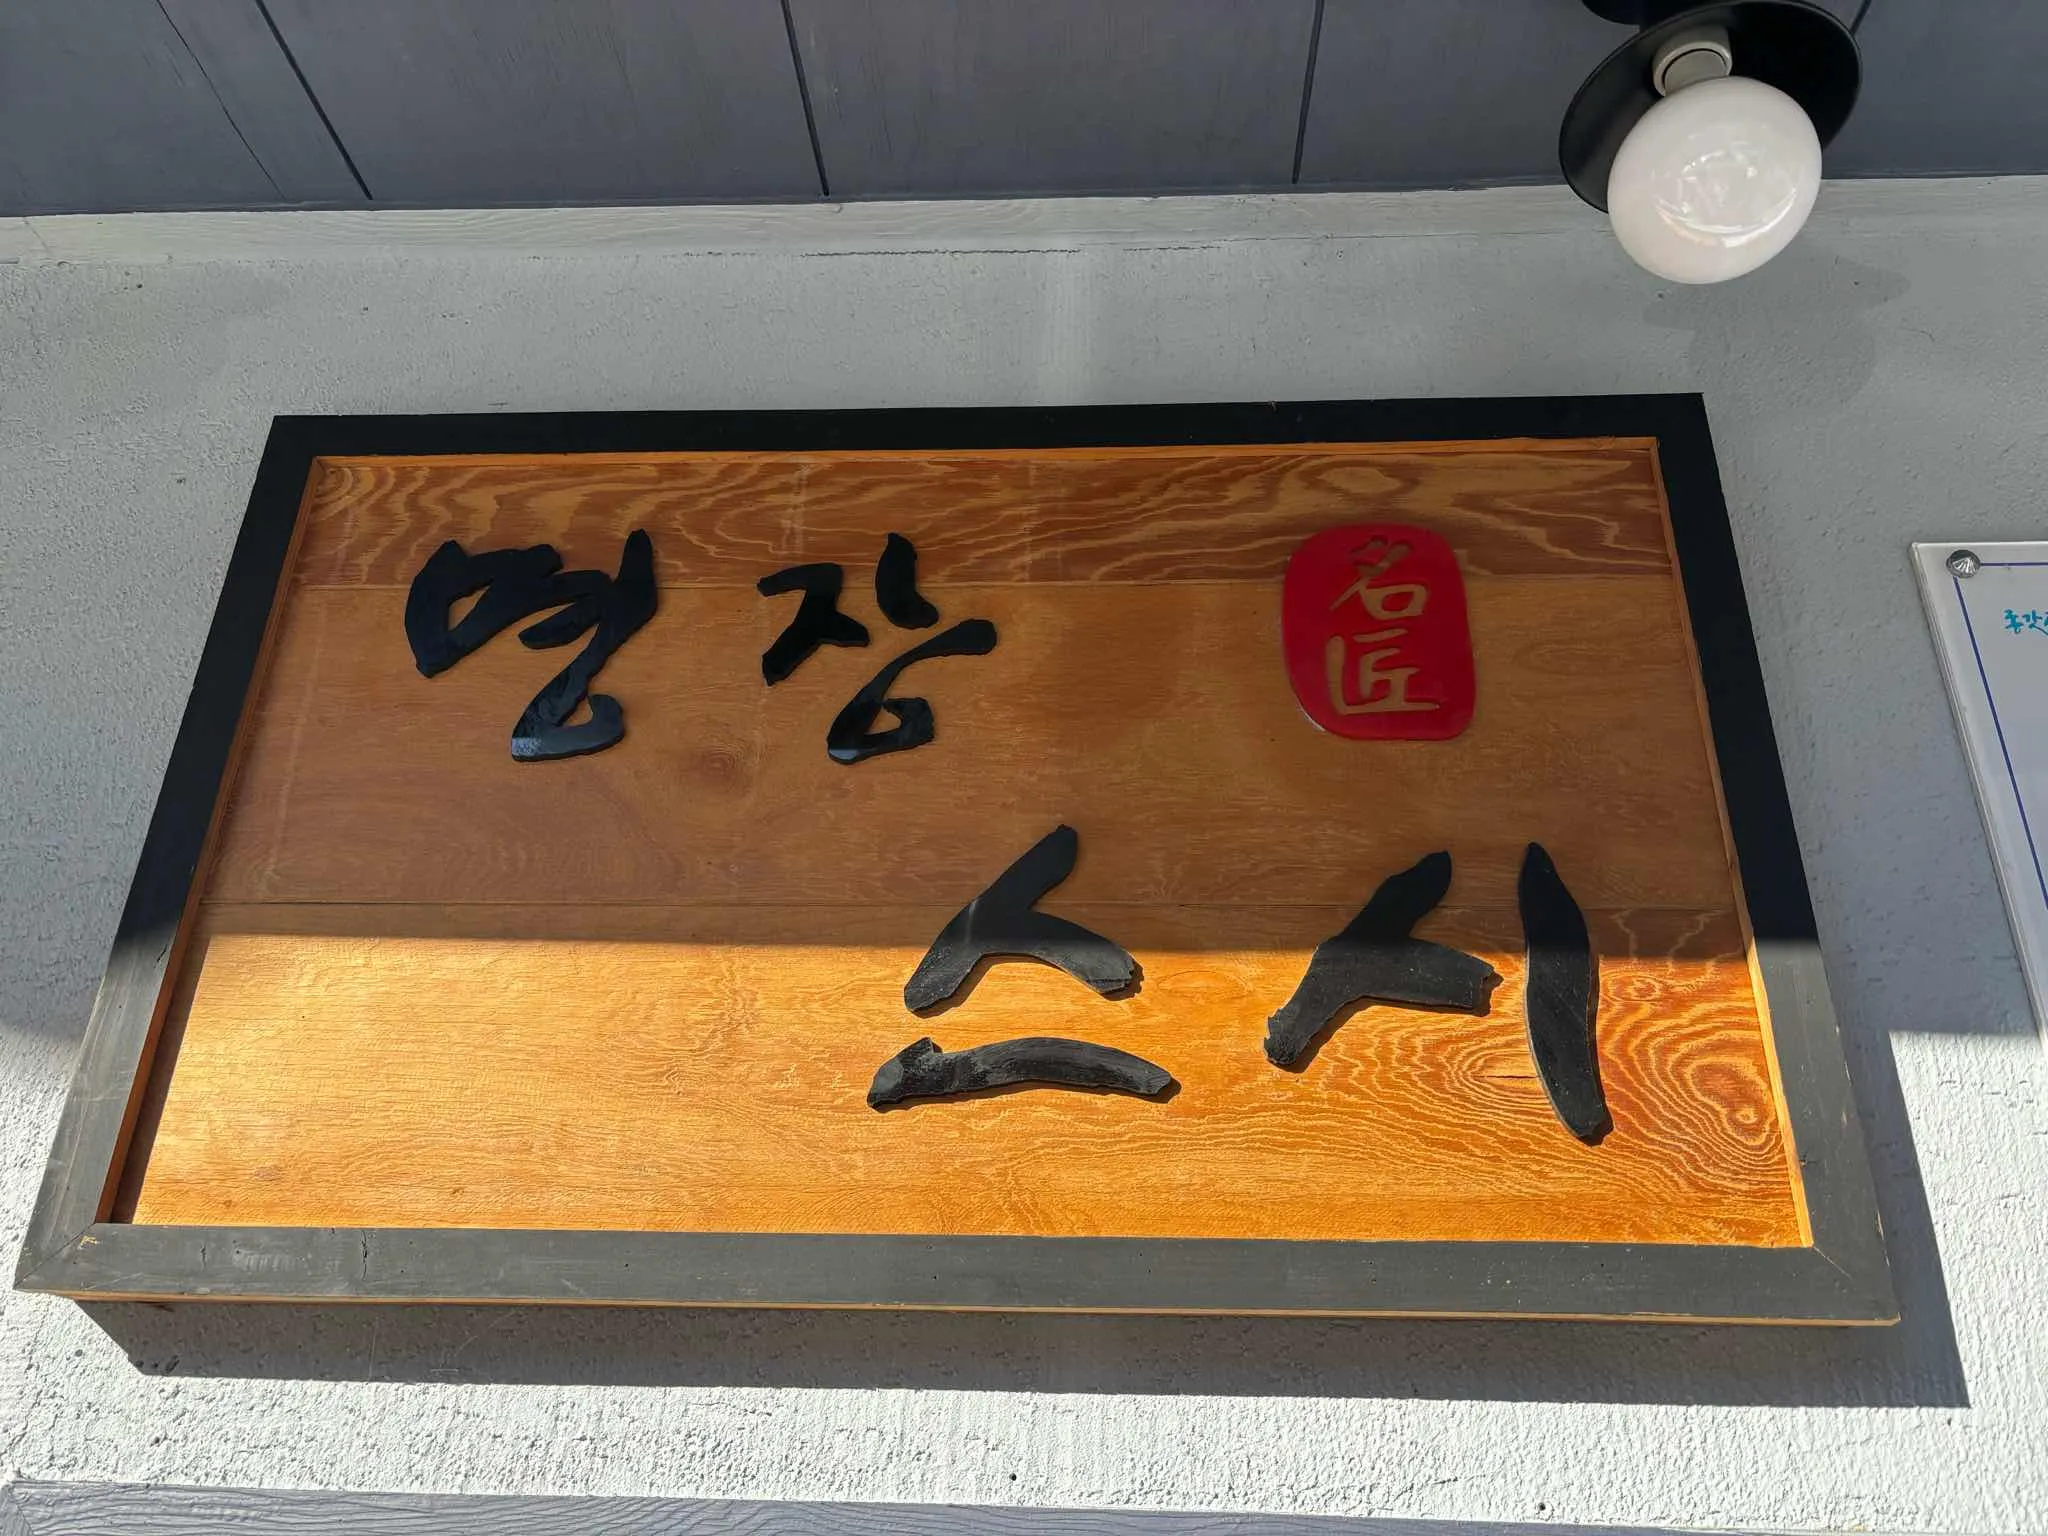 명장
名匠
스시